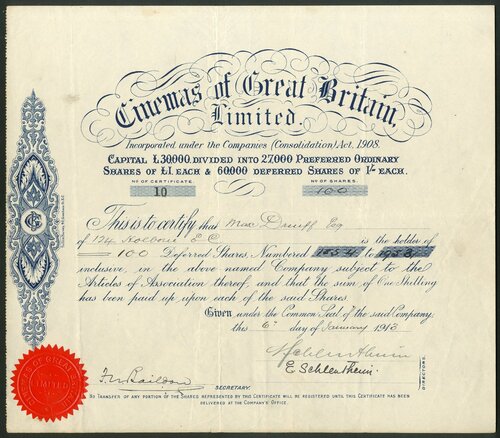 Cinemas of Great Britain,
Limited.
Incorporated under the Companies (Consolidation) Act, 1908.
CAPITAL £30,000, DIVIDED INTO 27,000 PREFERRED ORDINARY
SHARES OF £1 EACH & 60,000 DEFERRED SHARES OF 1/- EACH.
No OF CERTIFICATE. No OF SHARES.
10 100
This is to certify that Max Esq
of 124 E.C is the holder of
100 Deferred Shares, Numbered to
inclusive, in the above named Company subject to the
Articles of Association thereof, and that the sum of One Shilling
has been paid up upon each of the said Shares.
Given under the Common Seal of the said Company,
this 6th day of January 1913
E Schlentheim
DIRECTORS.
SECRETARY.
No TRANSFER OF ANY PORTION OF THE SHARES REPRESENTED BY THIS CERTIFICATE WILL BE REGISTERED UNTIL THIS CERTIFICATE HAS BEEN
DELIVERED AT THE COMPANY'S OFFICE.
LIMITED